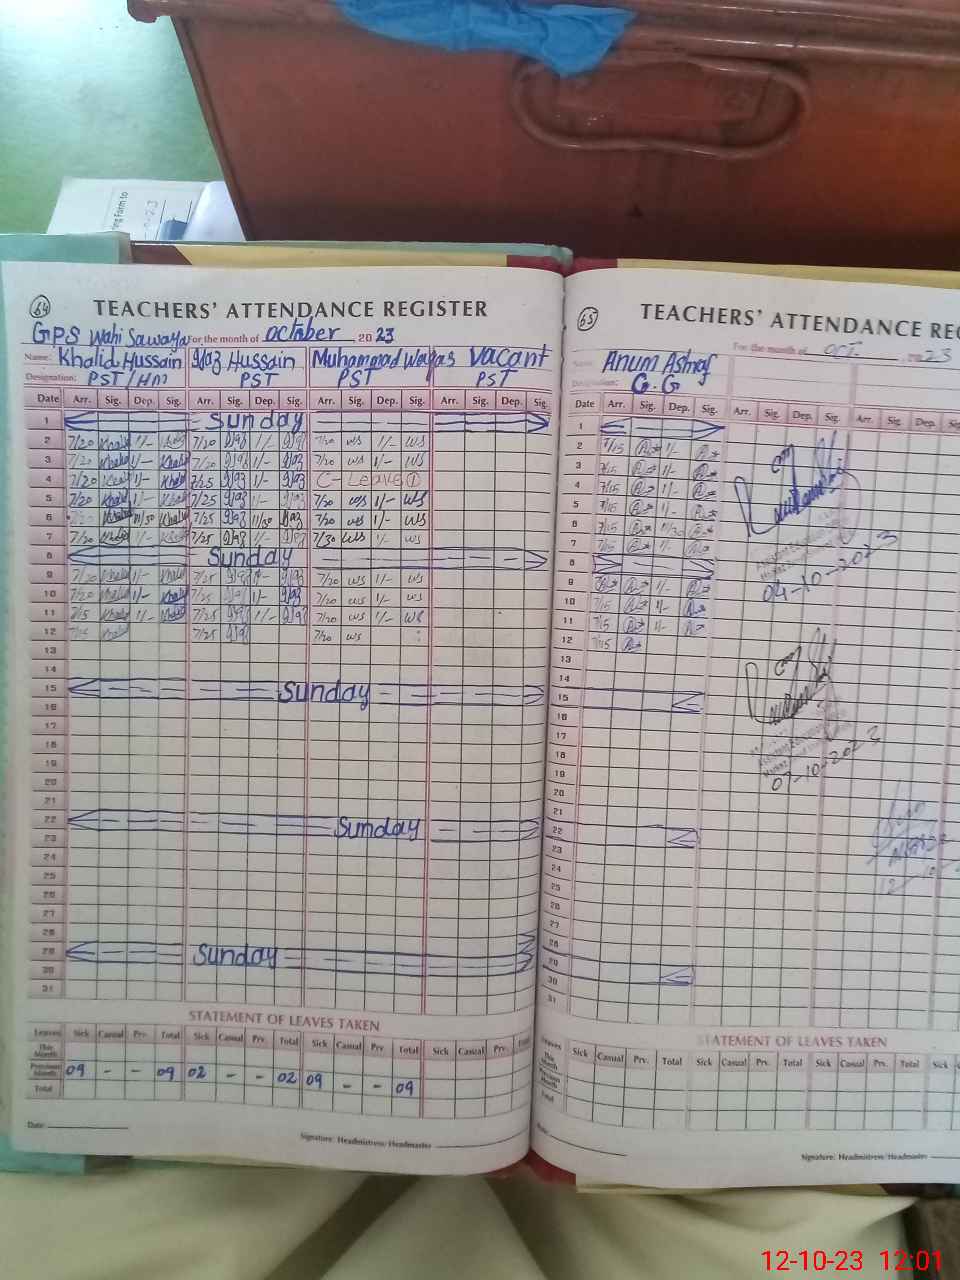 ing Form to
64
TEACHERS' ATTENDANCE REGISTER
GPS Wahi Sawaya For the month of October 2023
Name: Khalid Hussain Ijaz Hussain Muhammad Waqas Vacant
Designation: PST/HM PST PST PST
Date Arr. Sig. Dep. Sig. Arr. Sig. Dep. Sig. Arr. Sig. Dep. Sig. Arr. Sig. Dep. Sig.
1 Sunday
2 7/20 Khalid 1/- Khalid 7/20 1/- 7/20 WS 1/- WS
3 7/20 Khalid 1/- Khalid 7/20 1/- 7/20 WS 1/- WS
4 7/20 1/- Khalid 7/25 1/- C-Leave 1
5 7/20 Khalid 1/- Khalid 7/25 1/- 7/20 WS 1/- WS
6 Khalid 11/30 Khalid 7/25 11/30 7/20 WS 1/- WS
7 7/20 Khalid 1/- Khalid 7/25 1/- 7/30 WS 1/- WS
8 Sunday
9 7/20 Khalid 1/- Khalid 7/25 7/20 WS 1/- WS
10 7/20 Khalid 1/- Khalid 7/25 1/- 7/20 WS 1/- WS
11 7/15 Khalid 1/- Khalid 7/25 1/- 7/20 WS 1/- WS
12 7/15 Khalid 7/25 7/20 WS
13
14
15 Sunday
16
17
18
19
20
21
22 Sunday
23
24
25
26
27
28
29 Sunday
30
31
STATEMENT OF LEAVES TAKEN
Leaves Sick Casual Prv. Total Sick Casual Prv. Total Sick Casual Prv. Total Sick Casual Prv. Total
This Month
Previous Month 09 - - 09 02 - - 02 09 - - 09
Total
Date:
Signature: Headmistress/Headmaster
65
TEACHERS' ATTENDANCE REG
For the month of Oct. 2023
Name: Anum Ashraf
Designation: G.G
Date Arr. Sig. Dep. Sig. Arr. Sig. Dep. Sig. Arr. Sig. Dep. Sig.
1
2 7/15 1/-
3 7/15 1/-
4 7/15 1/-
5 7/15 1/-
6 7/15
7 7/15 1/-
8
9 7/15 1/-
10 7/15 1/-
11 7/15 1/-
12 7/15
13
14
15
16
17
18
19
20
21
22
23
24
25
26
27
28
29
30
31
04-10-2023
Assistant Education Officer
07-10-2023
STATEMENT OF LEAVES TAKEN
Leaves Sick Casual Prv. Total Sick Casual Prv. Total Sick Casual Prv. Total Sick
This Month
Previous Month
Total
Date:
Signature: Headmistress/Headmaster
12-10-23 12:01